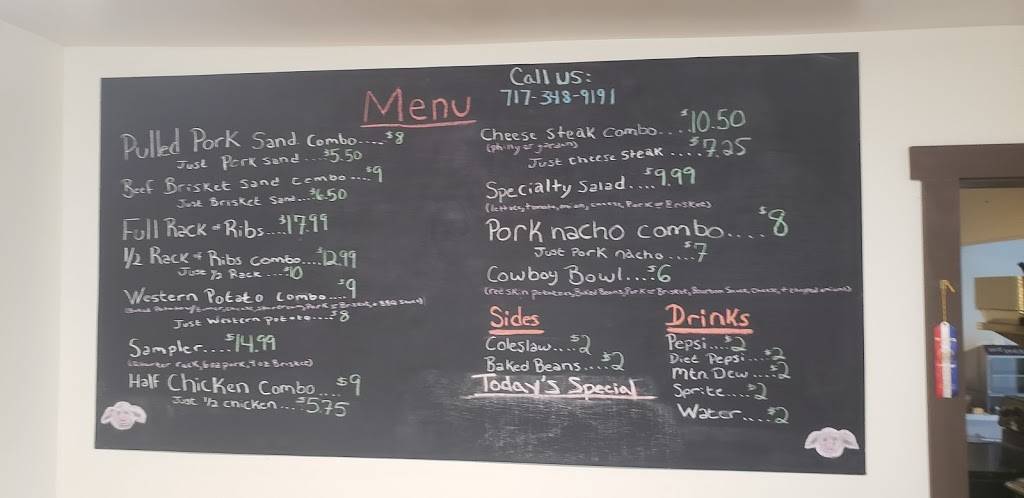 Menu
Call us:
717-348-9191
Pulled Pork Sand Combo....$8
Just Pork Sand....$5.50
Beef Brisket Sand Combo....$9
Just Brisket Sand...$6.50
Full Rack of Ribs...$17.99
1/2 Rack of Ribs Combo....$12.99
Just 1/2 Rack....$10
Western Potato Combo....$9
Just Western Potato....$8
Sampler....$14.99
(Quarter rack, 6oz pork, 7oz Brisket)
Half Chicken Combo...$9
Just 1/2 chicken....$5.75
Cheese Steak Combo....$10.50
(philly or garden)
Just Cheese Steak.....$7.25
Specialty Salad....$9.99
(lettuce, tomato, onion, cheese, Pork or Brisket)
Pork nacho combo.....$8
Just Pork nacho....$7
Cowboy Bowl....$6
(red skin potatoes, Baked Beans, Pork or Brisket, Bourbon Sauce, cheese, + chopped onions)
Sides
Coleslaw....$2
Baked Beans....$2
Today's Special
Drinks
Pepsi....$2
Diet Pepsi....$2
Mtn Dew....$2
Sprite....$2
Water....$2